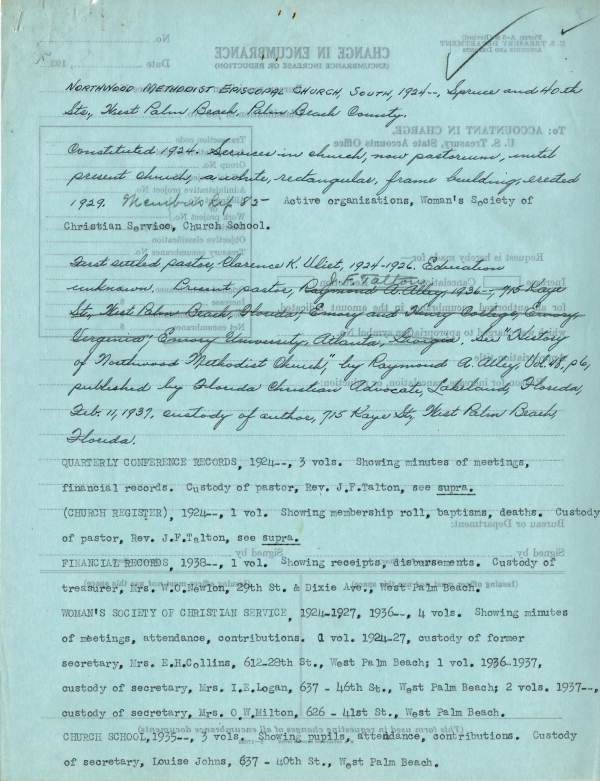 Northwood Methodist Episcopal Church, South, 1924--, Spruce and 40th
Sts., West Palm Beach, Palm Beach County.
Constituted 1924. Services in church, now pastorium, until
present church, a white, rectangular, frame building, erected
1929. Membership 82- Active organizations, Woman's Society of
Christian Service, Church School.
First settled pastor, Clarence K. Vliet, 1924-1926. Education
J. F. Talton
unknown. Present pastor, Raymond A. Alley, 1936--, 715 Kaye
St., West Palm Beach, Florida, Emory and Henry College, Emory,
Virginia; Emory University, Atlanta, Georgia. See "History
of Northwood Methodist Church", by Raymond A. Alley, Vol. 48, p6,
published by Florida Christian Advocate, Lakeland, Florida,
Feb. 11, 1937. custody of author, 715 Kaye St., West Palm Beach,
Florida.
QUARTERLY CONFERENCE RECORDS, 1924--, 3 vols. Showing minutes of meetings,
financial records. Custody of pastor, Rev. J.F.Talton, see supra.
(CHURCH REGISTER), 1924--, 1 vol. Showing membership roll, baptisms, deaths. Custody
of pastor, Rev. J.F.Talton, see supra.
FINANCIAL RECORDS, 1938--, 1 vol. Showing receipts, disbursements. Custody of
treasurer, Mrs. W.O.Newlon, 29th St. & Dixie Ave., West Palm Beach.
WOMAN'S SOCIETY OF CHRISTIAN SERVICE, 1924-1927, 1936--, 4 vols. Showing minutes
of meetings, attendance, contributions. 1 vol. 1924-27, custody of former
secretary, Mrs. E.H.Collins, 612-28th St., West Palm Beach; 1 vol. 1936-1937,
custody of secretary, Mrs. I.E.Logan, 637 - 46th St., West Palm Beach; 2 vols. 1937--,
custody of secretary, Mrs. O.W.Milton, 626 - 41st St., West Palm Beach.
CHURCH SCHOOL,1935--, 3 vols. Showing pupils, attendance, contributions. Custody
of secretary, Louise Johns, 637 - 40th St., West Palm Beach.